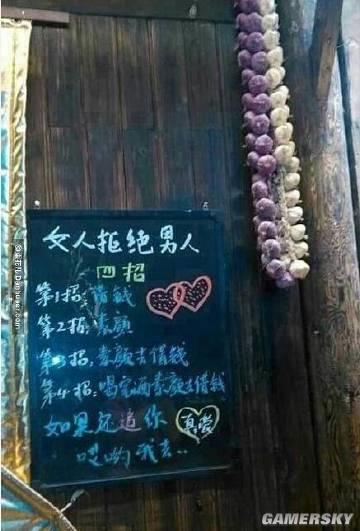 女人拒绝男人
四招
第1招:借钱
第2招:素颜
第3招:素颜去借钱
第4招:喝完酒素颜去借钱
如果还追你
真爱
哎哟我去..
GAMERSKY